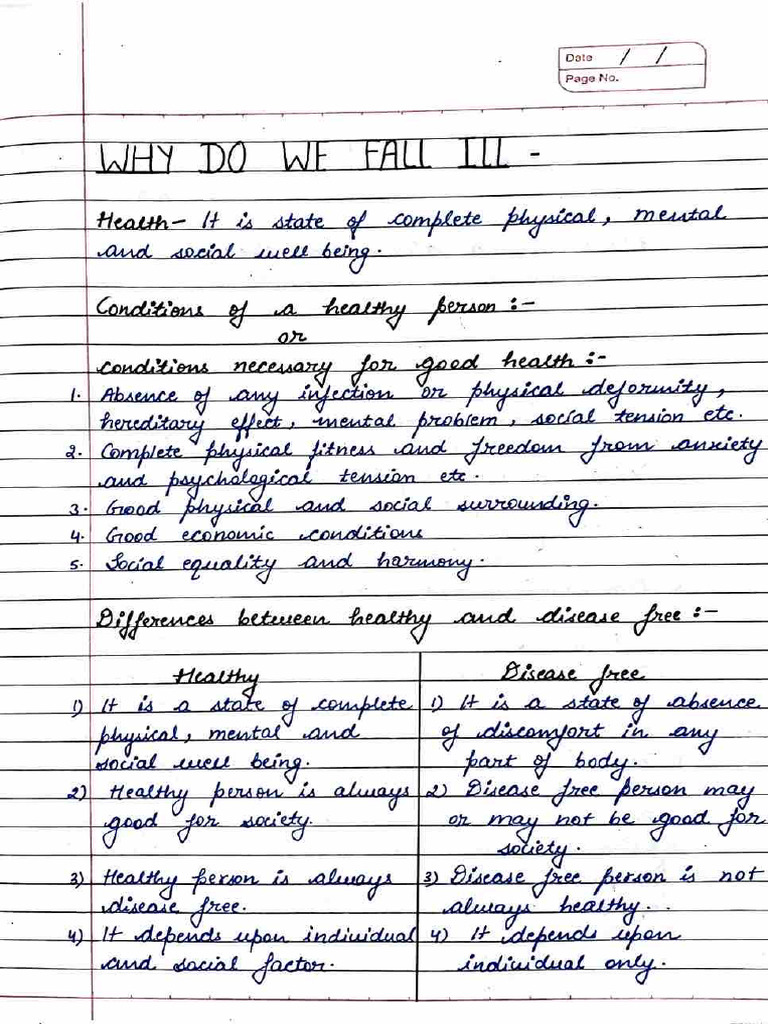 Date / /
Page No.
WHY DO WE FALL ILL -
Health- It is state of complete physical, mental
and social well being.
Conditions of a healthy person :-
or
conditions necessary for good health :-
1. Absence of any infection or physical deformity,
hereditary effect, mental problem, social tension etc.
2. Complete physical fitness and freedom from anxiety
and psychological tension etc.
3. Good physical and social surrounding.
4. Good economic conditions
5. Social equality and harmony.
Differences between healthy and disease free :-
Healthy
1) It is a state of complete
physical, mental and
social well being.
2) Healthy person is always
good for society.
3) Healthy person is always
disease free.
4) It depends upon individual
and social factor.
Disease free
1) It is a state of absence
of discomfort in any
part of body.
2) Disease free person may
or may not be good for
society.
3) Disease free person is not
always healthy..
4) It depends upon
individual only.